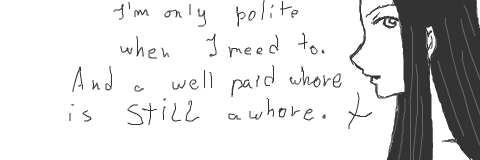 I'm only polite
when I need to.
And a well paid whore
is STiLL a whore.